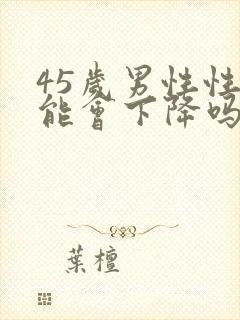 45歲男性性
能會下降吗
葉檀